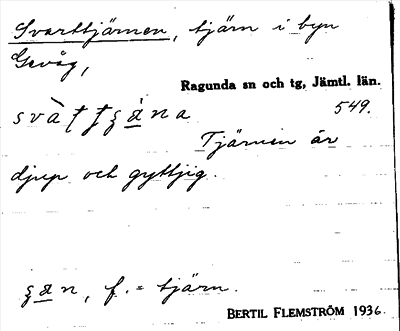 Svarttjärnen, tjärn i byn
Gevåg,
Ragunda sn och tg, Jämtl. län.
549.
Tjärnen är
djup och gyttjig.
f. = tjärn.
BERTIL FLEMSTRÖM 1936.